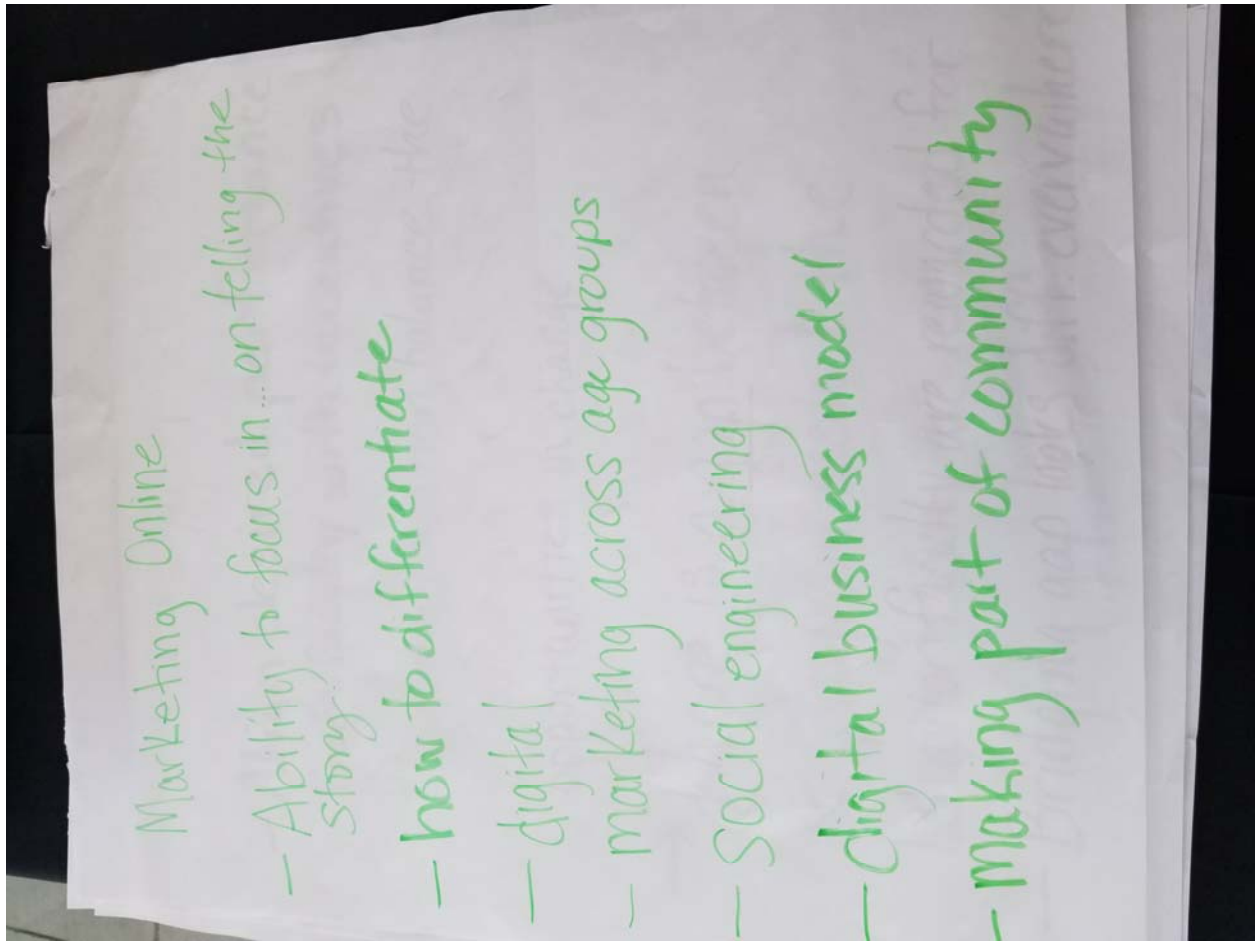 Marketing Online
- Ability to focus in... on telling the
story.
- how to differentiate
- digital
- marketing across age groups
- Social engineering
- digital business model
- Making part of community